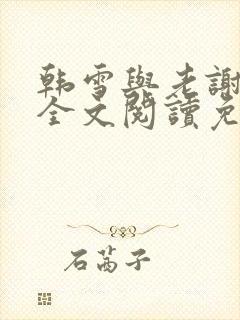 韩雪與老謝
全文閱讀免
石芮子